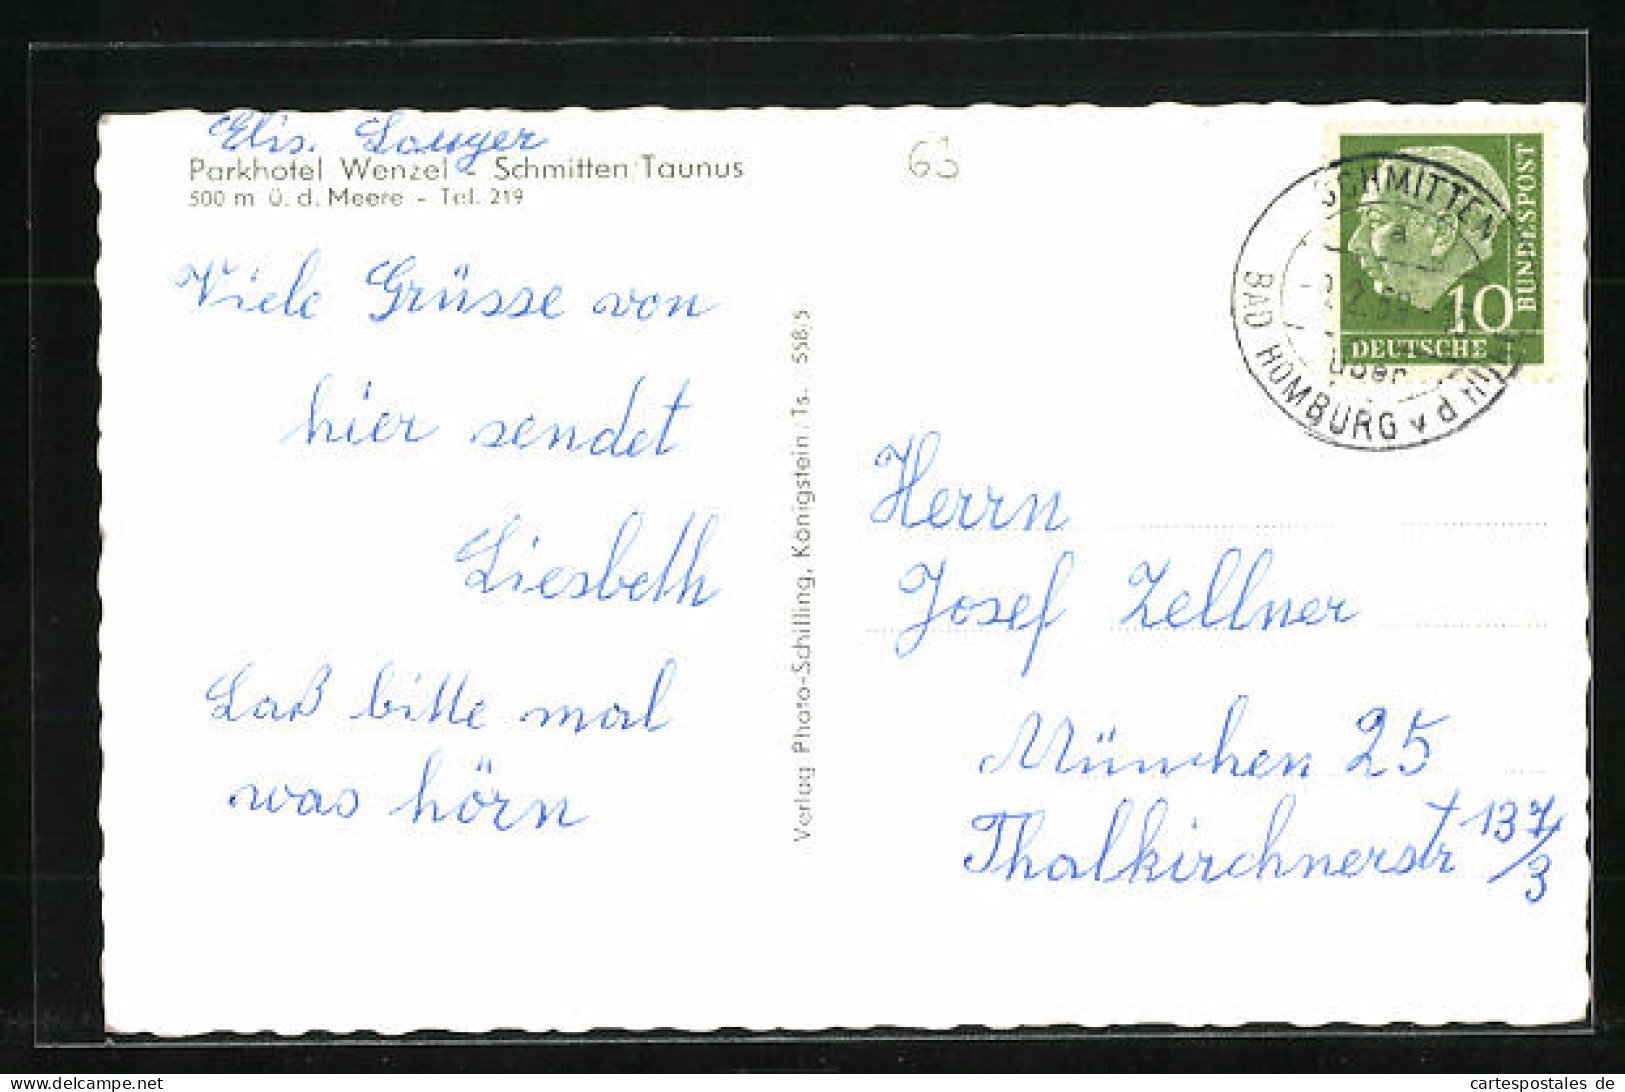 Elis. Lauger
Parkhotel Wenzel - Schmitten/Taunus
500 m ü. d. Meere - Tel. 219
Viele Grüsse von
hier sendet
Liesbeth
Laß bitte mal
was hörn
Verlag Photo-Schilling, Königstein/Ts. 558/5
63
SCHMITTEN
a
über
BAD HOMBURG v d HÖHE
10
DEUTSCHE
BUNDESPOST
Herrn
Josef Zellner
München 25
Thalkirchnerstr 137
/3
cartespostales de
www.cartespostales.de